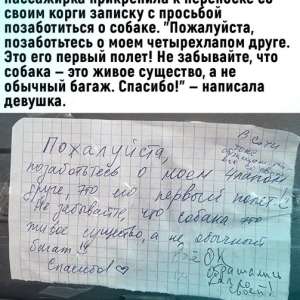 пассажирка прикрепила к переноске со
своим корги записку с просьбой
позаботиться о собаке. "Пожалуйста,
позаботьтесь о моем четырехлапом друге.
Это его первый полет! Не забывайте, что
собака – это живое существо, а не
обычный багаж. Спасибо!" – написала
девушка.
Пожалуйста,
позаботьтесь о моем 4лапом
друге, это его первый полет!
Не забывайте, что собака это
живое существо, а не обычный
багаж!!
Спасибо!
В Сочи
ОК
обращались